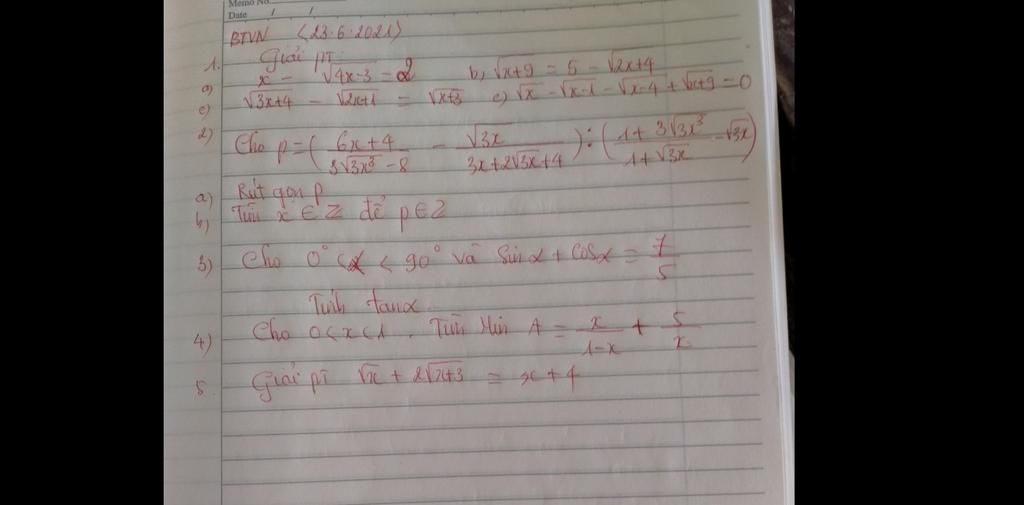 Memo No.
Date / /
BTVN (23.6.2021)
1. Giải pt:
a) x - √(4x-3) = 2 b, √(x+9) = 5 - √(2x+4)
c) √(3x+4) - √(2x+1) = √(x+3) c) √x - √(x-1) - √(x-4) + √(x+9) = 0
2) Cho p = ( (6x+4)/(3√(3x³) - 8) - √(3x)/(3x+2√(3x)+4) ) : ( (1+3√(3x³))/(1+√(3x)) - √(3x) )
a) Rút gọn p
b) Tìm x ∈ Z để p ∈ Z
3) Cho 0° < α < 90° và Sinα + Cosα = 7/5
Tính tanα
4) Cho 0 < x < 1. Tìm Min A = x/(1-x) + 5/x
5. Giải pt √x + 2√(x+3) = x + 4